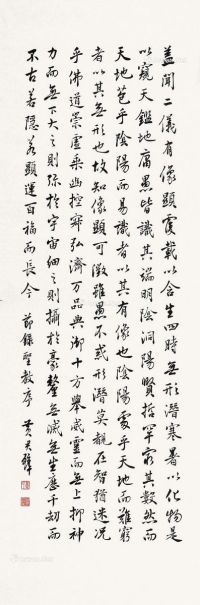 蓋聞二儀有像顯覆載以含生四時無形潛寒暑以化物是
以窺天鑑地庸愚皆識其端明陰洞陽賢哲罕窮其數然而
天地苞乎陰陽而易識者以其有像也陰陽處乎天地而難窮
者以其無形也故知像顯可徵雖愚不惑形潛莫覩在智猶迷況
乎佛道崇虛乘幽控寂弘濟萬品典御十方舉威靈而無上抑神
力而無下大之則彌於宇宙細之則攝於豪釐無滅無生應千劫而
不古若隱若顯運百福而長今 節錄聖教序 黃君璧